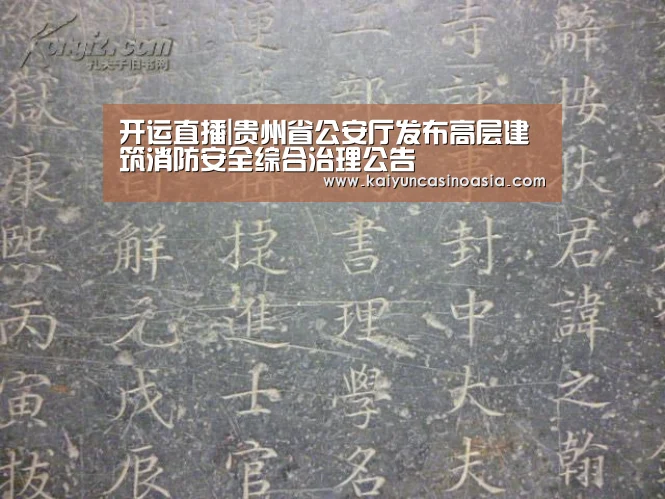 Kongfz.com
孔夫子旧书网
开运直播|贵州省公安厅发布高层建
筑消防安全综合治理公告
www.kaiyuncasinoasia.com
辭按狀君諱之翰
寺評事封中大夫
工部書理學名
運捷進士官
解元戊辰
獄康熙丙寅拔